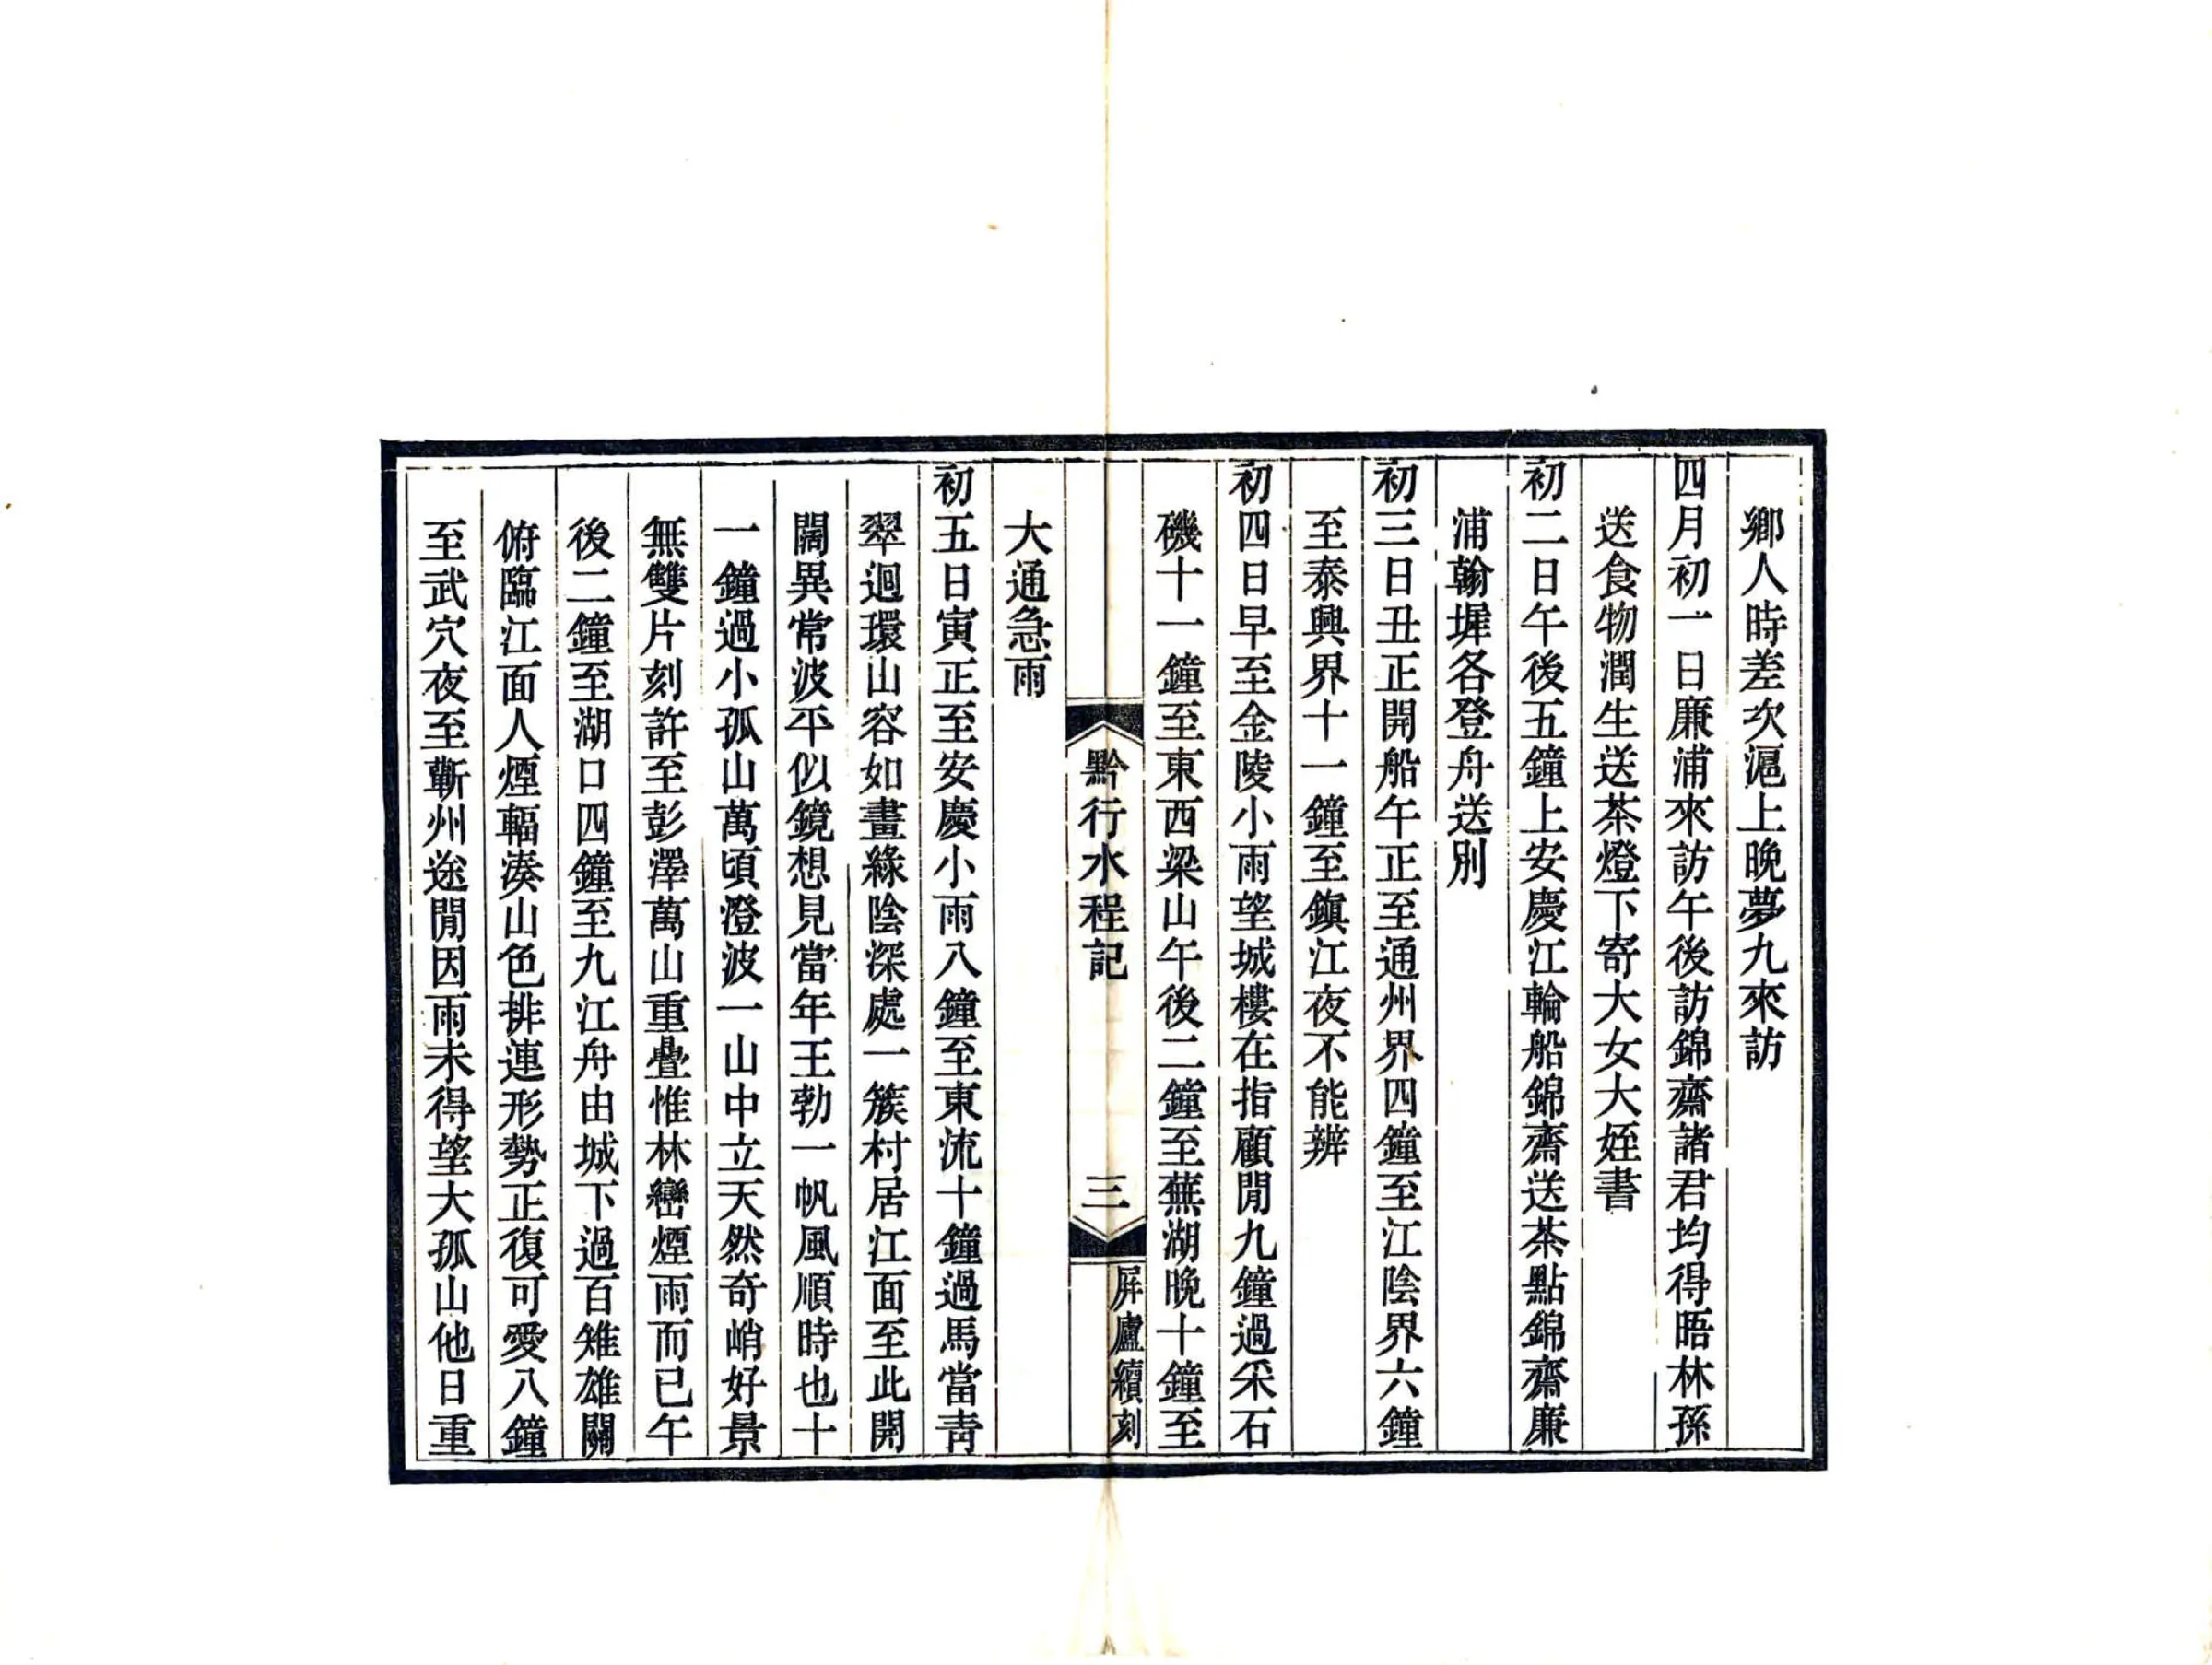 鄉人時差次滬上晚夢九來訪
四月初一日廉浦來訪午後訪錦齋諸君均得晤林孫
送食物潤生送茶燈下寄大女大姪書
初二日午後五鐘上安慶江輪船錦齋送茶點錦齋廉
浦翰墀各登舟送別
初三日丑正開船午正至通州界四鐘至江陰界六鐘
至泰興界十一鐘至鎭江夜不能辨
初四日早至金陵小雨望城樓在指顧閒九鐘過采石
磯十一鐘至東西梁山午後二鐘至蕪湖晚十鐘至
黔行水程記
三
屏廬續刻
大通急雨
初五日寅正至安慶小雨八鐘至東流十鐘過馬當靑
翠迴環山容如畫綠陰深處一簇村居江面至此開
闊異常波平似鏡想見當年王勃一帆風順時也十
一鐘過小孤山萬頃澄波一山中立天然奇峭好景
無雙片刻許至彭澤萬山重疊惟林巒煙雨而已午
後二鐘至湖口四鐘至九江舟由城下過百雉雄關
俯臨江面人煙輻湊山色排連形勢正復可愛八鐘
至武穴夜至蘄州途閒因雨未得望大孤山他日重